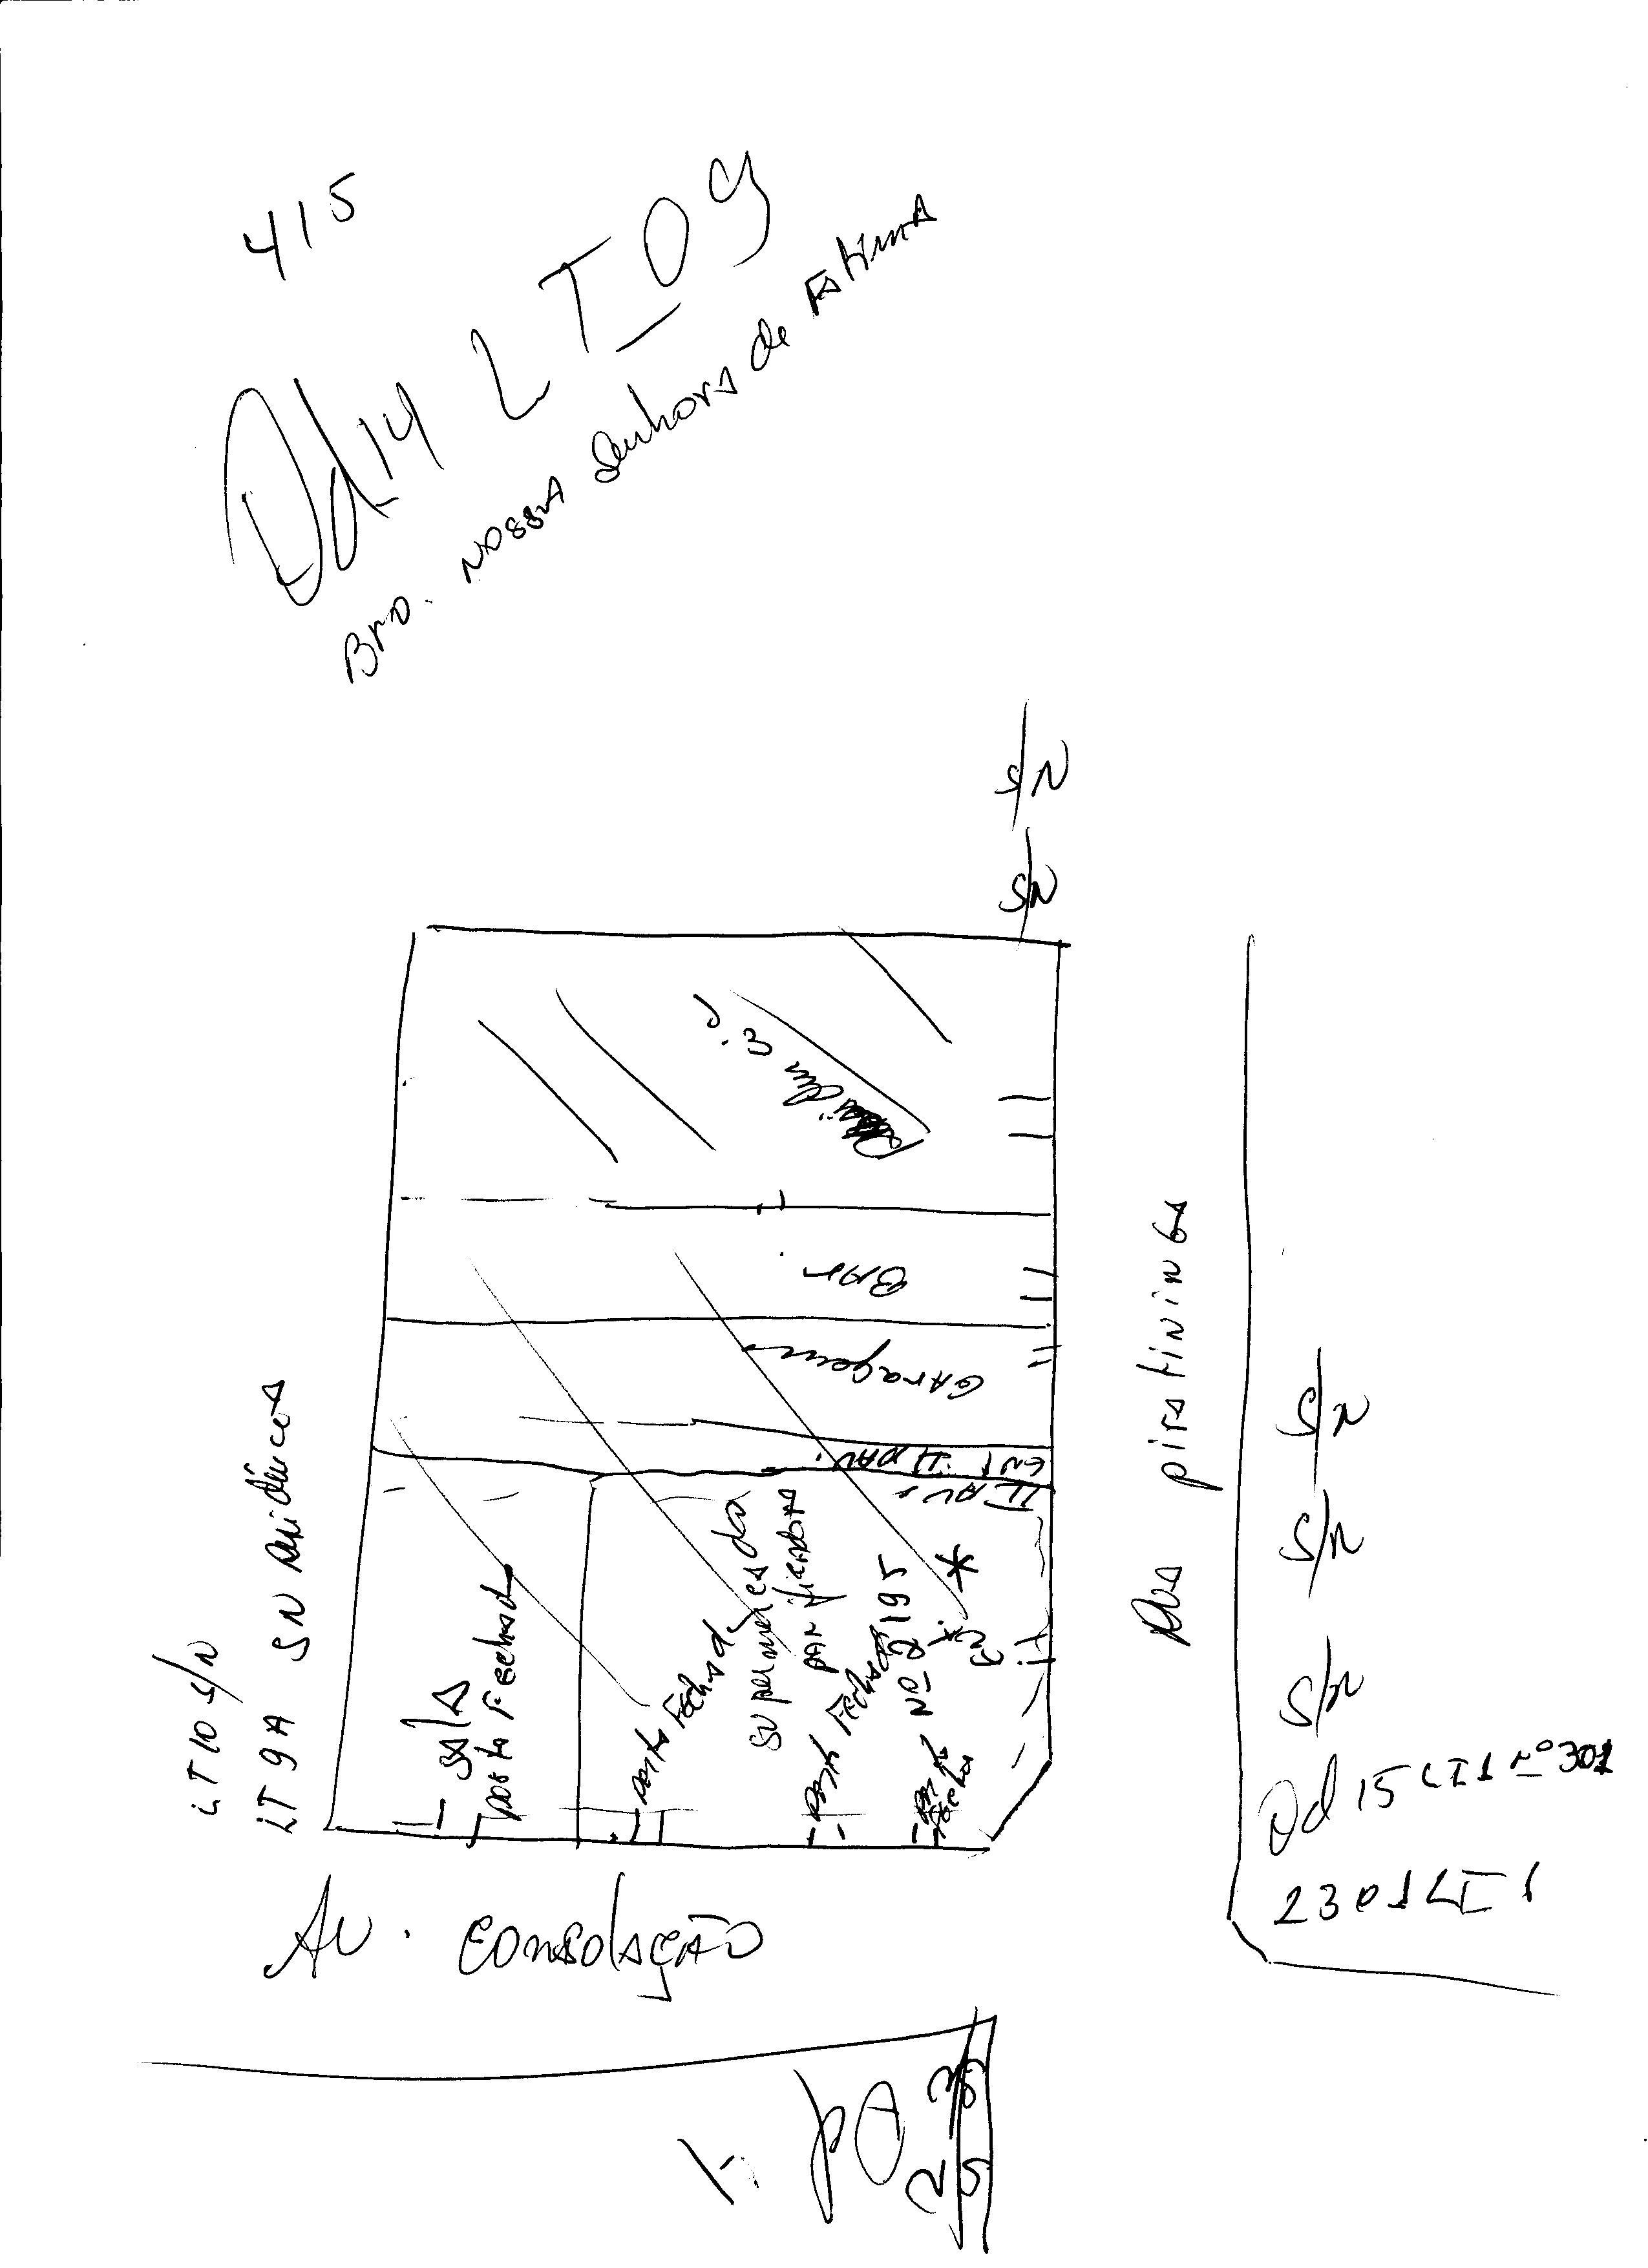 415
Qd 14 LT 09
Bro. Nossa Senhora de Fatima
S/N
S/N
Residencia
BAr
GArAgem
Ent II pAv.
II pAv.
supermercado
pAnificadora
Nº 2195
Ent. *
SAlA
porta Fechada
porta Fechada
porta Fechada
porta Fechada
LT 10 S/N
LT 9A SN residencia
Av. Consolação
Rua piratininga
S/N
S/N
S/N
Qd 15 LT 1 Nº 301
2301 LT 1